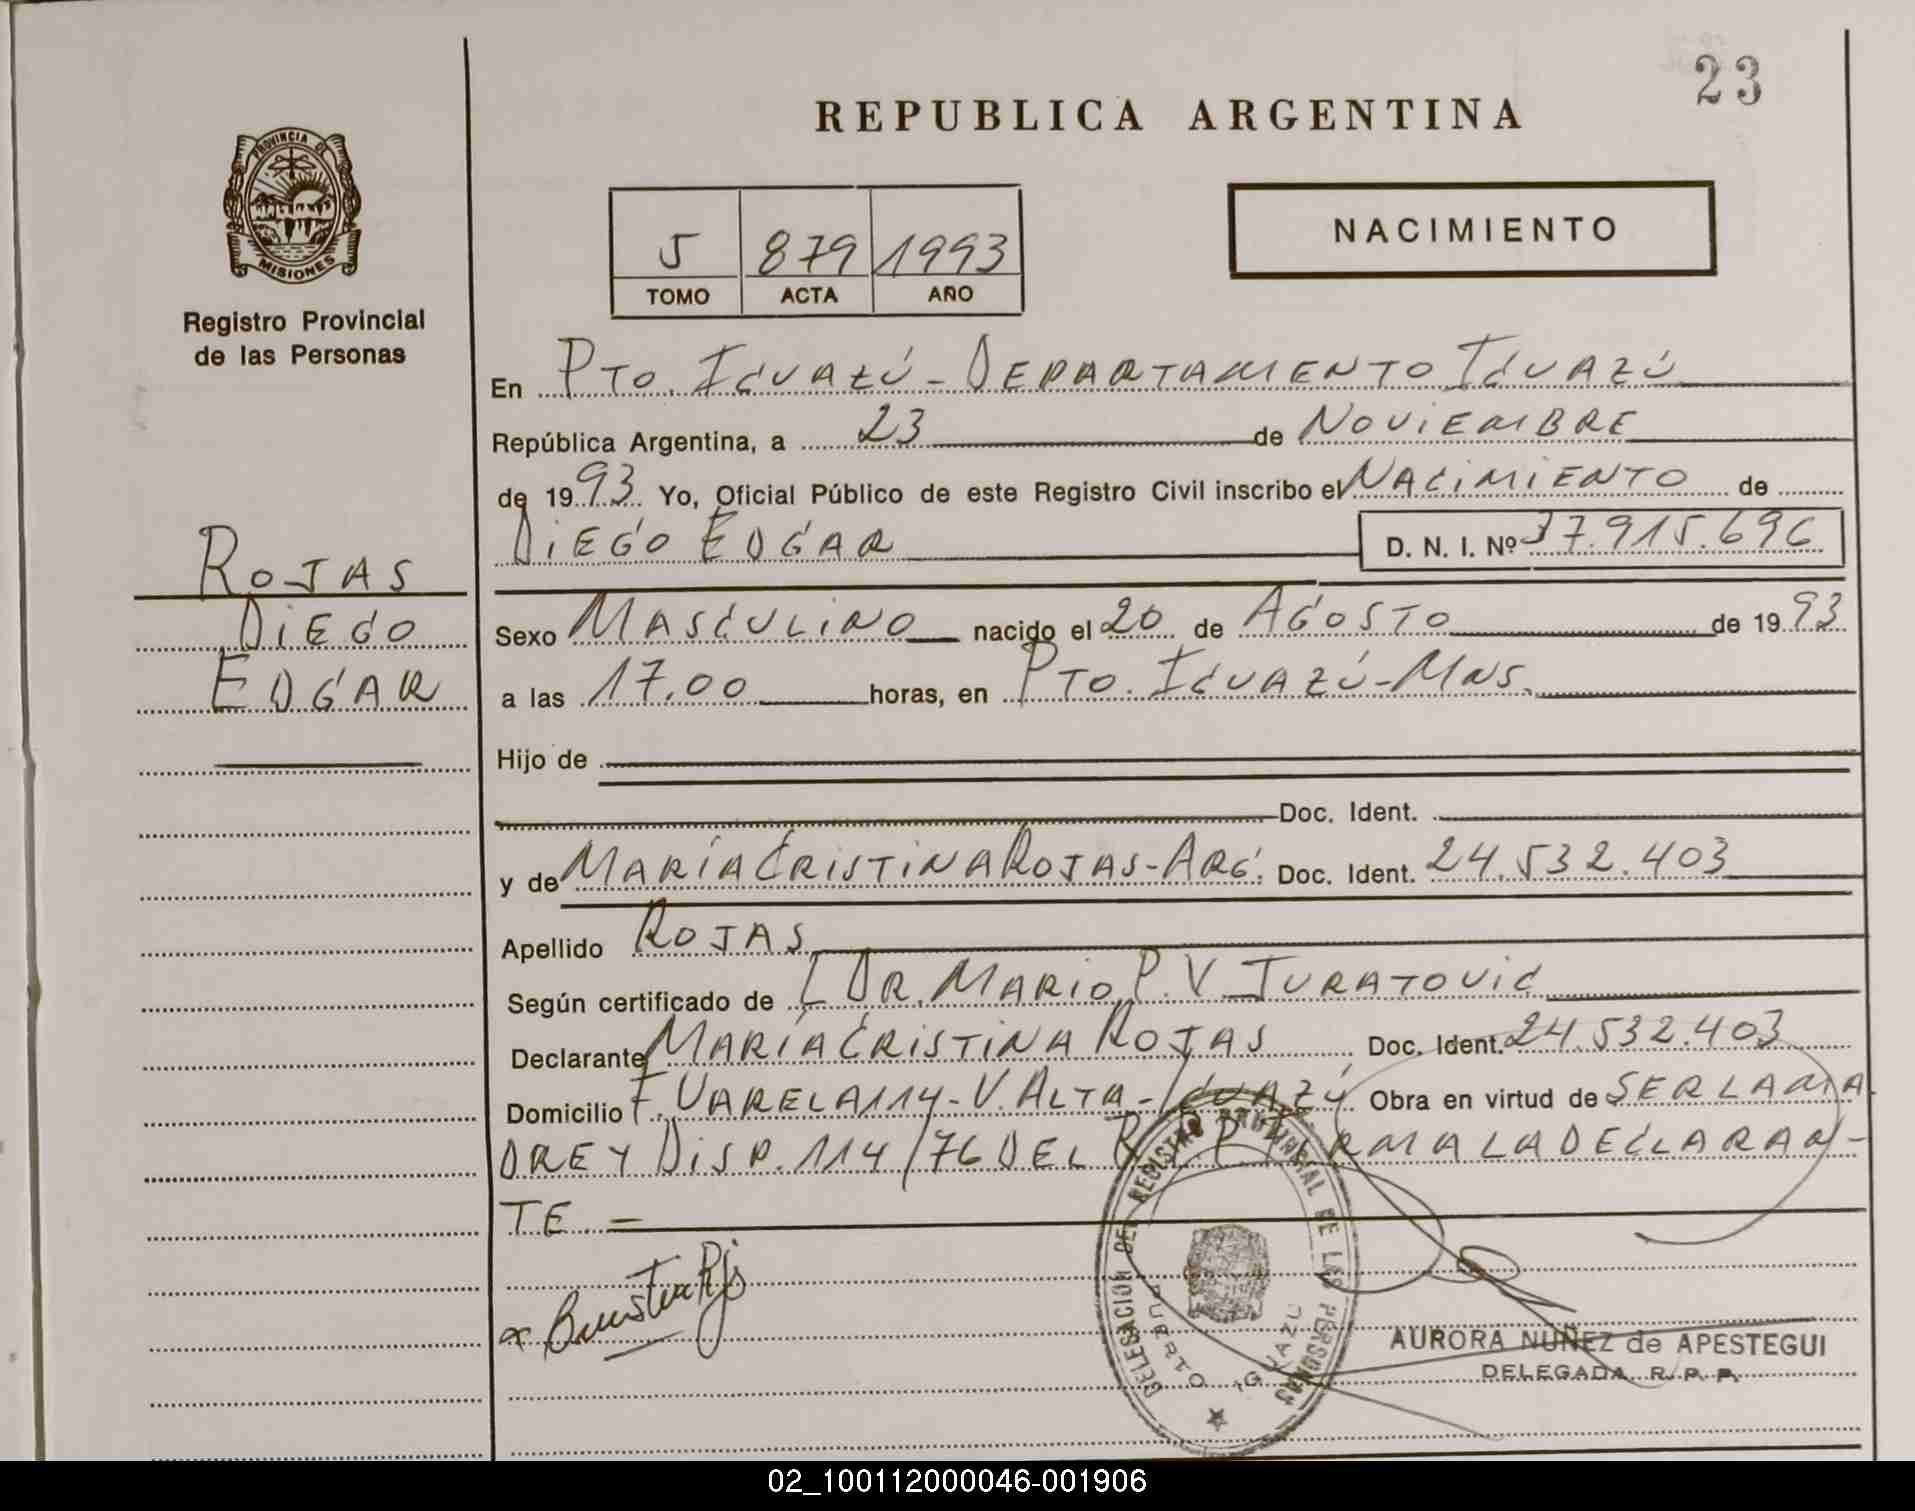 23
REPUBLICA ARGENTINA
PROVINCIA DE
MISIONES
Registro Provincial
de las Personas
NACIMIENTO
5 879 1993
TOMO ACTA AÑO
En PTO. IGUAZÚ - DEPARTAMENTO IGUAZÚ
República Argentina, a 23 de NOVIEMBRE
de 1993 Yo, Oficial Público de este Registro Civil inscribo el NACIMIENTO de
DIEGO EDGAR D. N. I. Nº 37.915.696
ROJAS
DIEGO
EDGAR
Sexo MASCULINO nacido el 20 de AGOSTO de 1993
a las 17.00 horas, en PTO. IGUAZÚ - MNS.
Hijo de
Doc. Ident.
y de MARÍA CRISTINA ROJAS - ARG. Doc. Ident. 24.532.403
Apellido ROJAS
Según certificado de DR. MARIO P. V. JURATOVIC
Declarante MARÍA CRISTINA ROJAS Doc. Ident. 24.532.403
Domicilio F. VARELA 114 - V. ALTA - IGUAZÚ Obra en virtud de SER LA MA
DRE Y DISP. 114/76 DEL R. P. P. FIRMA LA DECLARAN-
TE. =
DELEGACION DEL REGISTRO PROVINCIAL DE LAS PERSONAS
PUERTO IGUAZU
AURORA NUÑEZ de APESTEGUI
DELEGADA R. P. P.
02_100112000046-001906